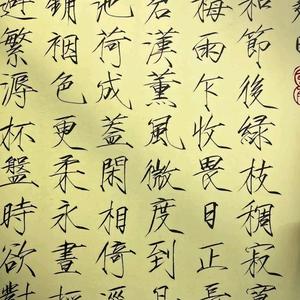 和節後綠枝稠寂
梅雨乍收畏日正長
漢薰風微度到
池荷成蓋閑相倚
裀色更柔永晝
繁潺杯盤時欲對